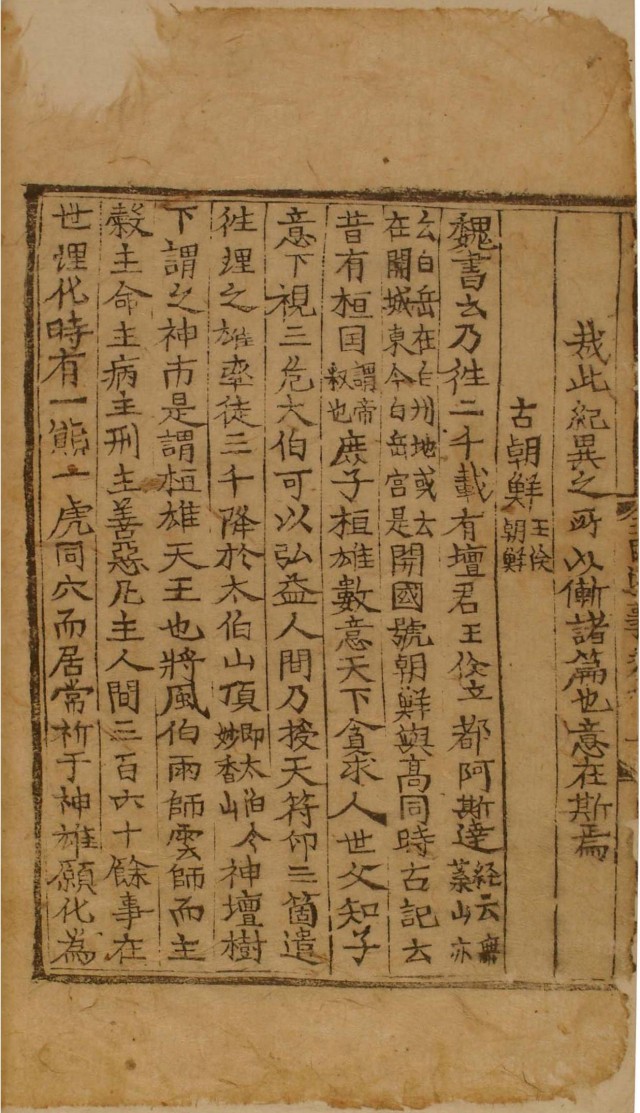 哉此紀異之所以慚諸篇也意在斯焉
古朝鮮王倹朝鮮
魏書云乃徃二千載有壇君王倹立都阿斯達経云無葉山亦
云白岳在白州地或云在開城東今白岳宮是開國號朝鮮與高同時古記云
昔有桓囯謂帝釈也庶子桓雄數意天下貪求人世父知子
意下視三危太伯可以弘益人間乃授天符印三箇遣
徃理之雄率徒三千降於太伯山頂即太伯今妙香山神壇樹
下謂之神市是謂桓雄天王也將風伯雨師雲師而主
穀主命主病主刑主善惡凡主人間三百六十餘事在
世理化時有一熊一虎同穴而居常祈于神雄願化為